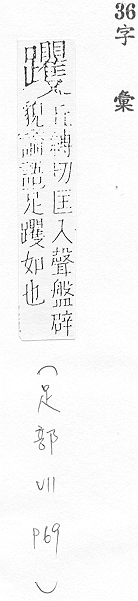 36字彙
躩丘縛切匡入聲盤辟
貌論語足躩如也
(足部 VII P69)